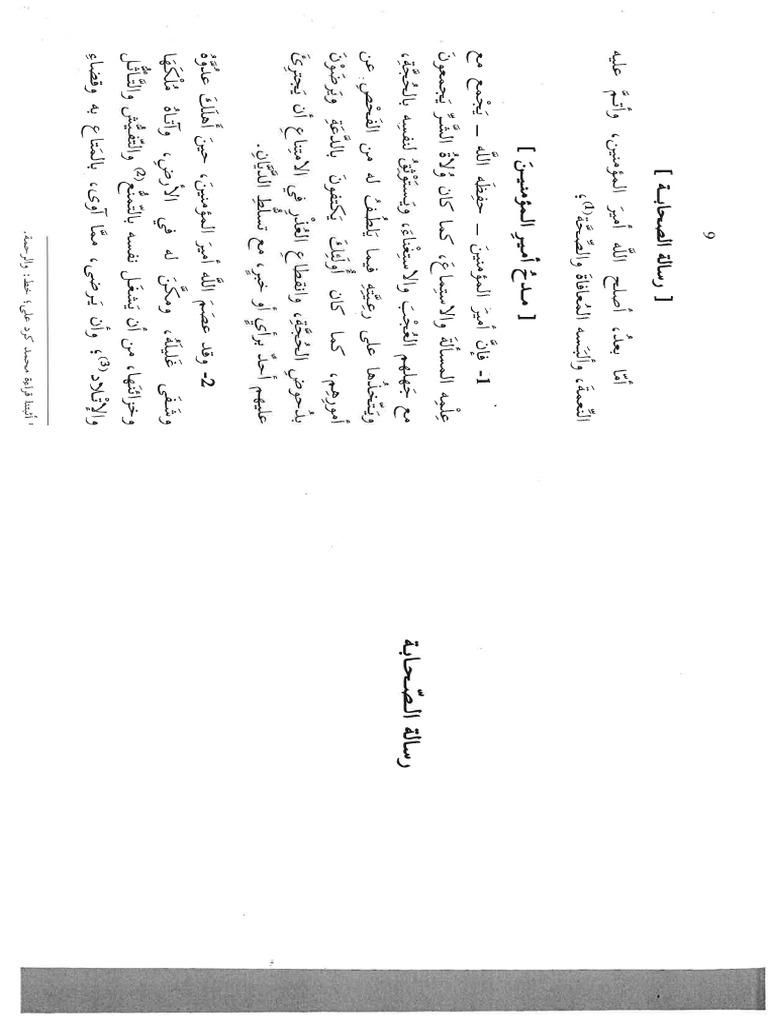 رسالة الصّحابة
9
[ رسالة الصحابة ]
أمّا بعدُ، أصلح اللّه أميرَ المؤمنين، وأتمَّ عليه
النّعمةَ، وألبَسه المُعافاةَ والصِّحّة(1)؛
[ مـدحُ أميرِ المـؤمنيـنَ ]
1- فإنَّ أميرَ المؤمنينَ – حفِظَه اللَّه – يَجْمع مع
عِلْمِه المسألةَ والاستِماعَ، كما كان وُلاةُ الشّرِّ يَجمعونَ
مع جَهلِهم العُجْبَ والاستِغْناءَ، ويَستوْثِقُ لنفسِه بالحُجّةِ،
ويَتَّخِذُها على رعيّتِه فيما يَلطُفُ له من الفَحْصِ عن
أمورِهم، كما كان أُولَئِكَ يَكتفونَ بالدَّعَةِ ويَرضَوْنَ
بدُحوضِ الحُجَّةِ، وانقطاعِ العُذْرِ في الامتِناعِ أن يَجترِئَ
عليهم أحدٌ برأيٍ أو خبرٍ، مع تسلُّطِ الدَّيَّانِ.
2- وقد عصَمَ اللَّه أميرَ المؤمنينَ، حينَ أَهلَكَ عدُوَّهُ
وشَفَى غَليلَهُ، ومكَّنَ له في الأرضِ، وآتاهُ مُلْكَها
وخزائنَها، من أن يَشغَل نفسَه بالتّمتّعِ(2) والتّفيُّشِ والتَّأثُّلِ
والإتْلادِ(3)؛ وأن يَرضى، ممَّا آوى، بالمَتاع به وقضاءِ
1 أثبتنا قراءة محمد كرد علي؛ خط: والرحمة.